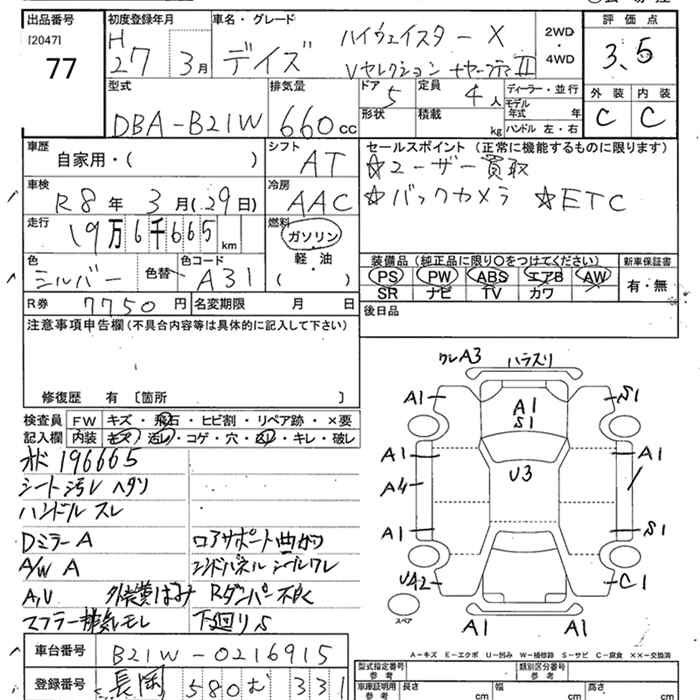 出品番号 初度登録年月 車名・グレード 評価点
[2047]
77
H 27 3月 デイズ ハイウェイスター X 2WD・4WD 3.5
Vセレクション
型式 排気量 ドア 定員 ディーラー・並行 外装 内装
DBA-B21W 660cc 5 4人 モデル年式 年 C C
形状 積載 kg ハンドル 左・右
車歴 シフト セールスポイント (正常に機能するものに限ります)
自家用・( ) AT ☆ユーザー買取
車検 冷房 ☆バックカメラ ☆ETC
R8年 3月(29日) AAC
走行 燃料
19万6千665km ガソリン
軽・油
( )
色 色替 色コード
シルバー A31
装備品 (純正品に限り○をつけてください) 新車保証書
PS PW ABS エアB AW 有・無
SR ナビ TV カワ
R券 7750円 名変期限 月 日
後日品
注意事項申告欄 (不具合内容等は具体的に記入して下さい)
修復歴 有 [箇所 ]
検査員 FW キズ・飛石・ヒビ割・リペア跡・×要
記入欄 内装 キズ・汚レ・コゲ・穴・スレ・キレ・破レ
196665
シート汚レ ヘタリ
ハンドル スレ
Dミラー A ロアサポート曲がり
A/W A エンドパネル シーラーワレ
A,U 外装黄ばみ
マフラー排気モレ 下廻りS
ワレA3 ハラスリ
A1 S1
A1
S1
A1 A1
U3
A4
A1 S1
UA2 C1
スペア
A1 A1
A-キズ E-エクボ U-凹み W-補修跡 S-サビ C-腐食 XX-交換済
車台番号 B21W-0216915
登録番号 長岡 580 む 331
型式指定番号 類別区分番号
参考 参考
車庫証明用 長さ 幅 高さ
参考 cm cm cm